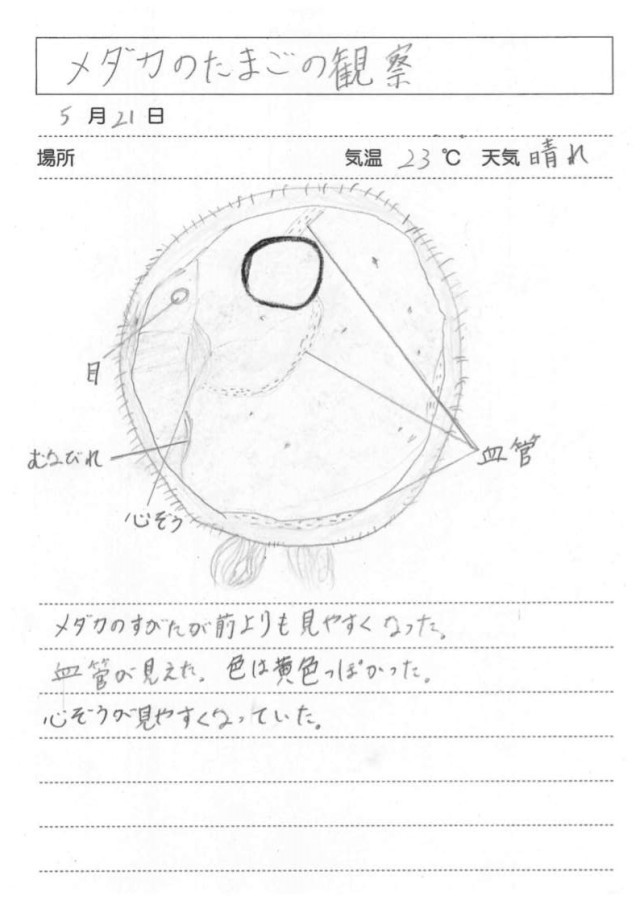 メダカのたまごの観察
5月21日
場所 気温 23℃ 天気 晴れ
目
むなびれ
心ぞう
血管
メダカのすがたが前よりも見やすくなった。
血管が見えた。色は黄色っぽかった。
心ぞうが見やすくなっていた。